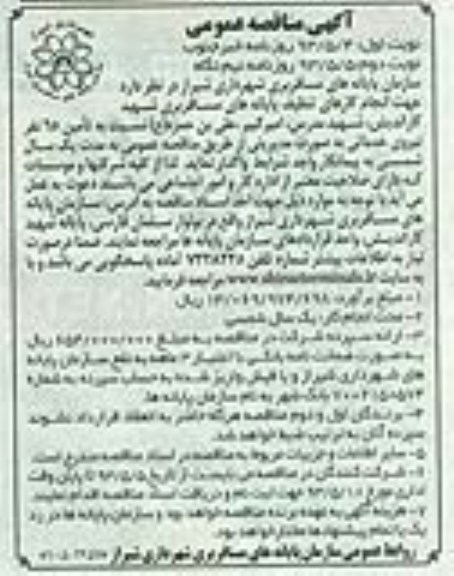 آگهی مناقصه عمومی
نوبت اول: ۹۳/۵/۴ روزنامه خبر جنوب
نوبت دوم: ۹۳/۵/۵ روزنامه نیم نگاه
سازمان پایانه های مسافربری شهرداری شیراز در نظر دارد
جهت انجام کارهای تنظیف پایانه های مسافربری شهید
کاراندیش، شهید مدرس، امیرکبیر، علی بن حمزه(ع) نسبت به تأمین ۶۵ نفر
نیروی خدماتی به صورت مدیریتی از طریق مناقصه عمومی به مدت یک سال
شمسی به پیمانکار واجد شرایط واگذار نماید. لذا از کلیه شرکتها و موسسات
که دارای صلاحیت معتبر از اداره کار و امور اجتماعی می باشند دعوت به عمل
می آید با توجه به موارد ذیل جهت اخذ اسناد مناقصه به آدرس: سازمان پایانه
های مسافربری شهرداری شیراز واقع در بولوار سلمان فارسی، پایانه شهید
کاراندیش، واحد قراردادهای سازمان پایانه ها مراجعه نمایند. ضمنا در صورت
نیاز به اطلاعات بیشتر شماره تلفن آماده پاسخگویی می باشد و یا
به سایت مراجعه فرمایید.
۱- مبلغ برآورد: ریال
۲- مدت انجام کار: یک سال شمسی
۳- ارائه سپرده شرکت در مناقصه به مبلغ ریال
به صورت ضمانت نامه بانکی با اعتبار ۳ ماهه به نفع سازمان پایانه
های شهرداری شیراز و یا فیش واریز شده به حساب سپرده به شماره
بانک شهر به نام سازمان پایانه ها.
۴- برندگان اول و دوم مناقصه هرگاه حاضر به انعقاد قرارداد نشوند
سپرده آنان به ترتیب ضبط خواهد شد.
۵- سایر اطلاعات و جزییات مربوط به مناقصه در اسناد مناقصه مندرج است.
۶- شرکت کنندگان در مناقصه می بایست از تاریخ ۹۳/۵/۵ تا پایان وقت
اداری مورخ جهت ثبت نام و دریافت اسناد مناقصه اقدام نمایند.
۷- هزینه آگهی به عهده برنده مناقصه خواهد بود و سازمان پایانه ها در رد
یک یا تمام پیشنهادها مختار خواهد بود.
روابط عمومی سازمان پایانه های مسافربری شهرداری شیراز